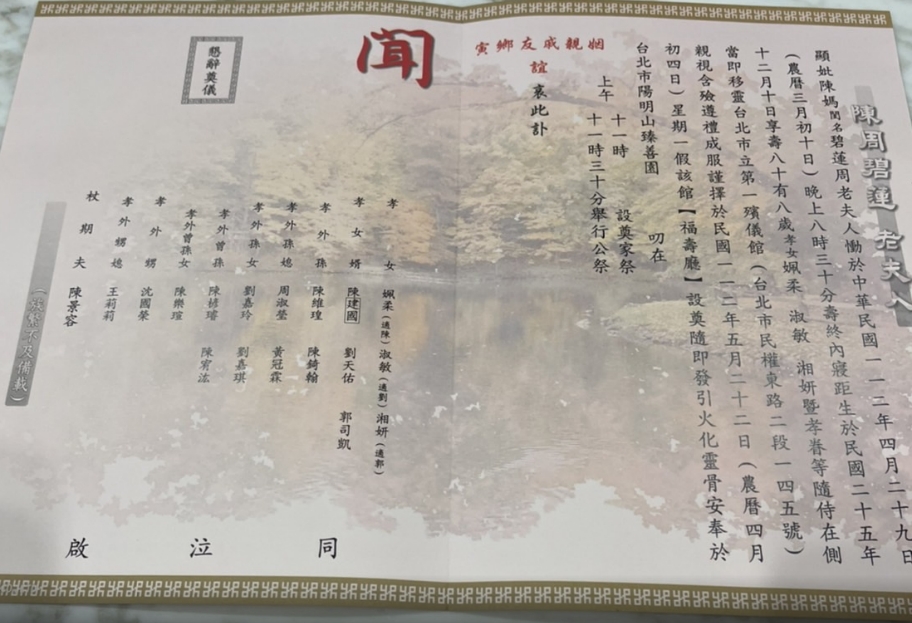 陳周碧蓮 老夫人
顯妣陳媽閨名碧蓮周老夫人慟於中華民國一一二年四月二十九日
(農曆三月初十日)晚上八時三十分壽終內寢距生於民國二十五年
十二月十日享壽八十有八歲孝女姵柔 淑敏 湘妍暨孝眷等隨侍在側
當即移靈台北市立第一殯儀館(台北市民權東路二段一四五號)
親視含殮遵禮成服謹擇於民國一一二年五月二十二日(農曆四月
初四日)星期一假該館【福壽廳】設奠隨即發引火化靈骨安奉於
台北市陽明山臻善園 叨在
上午 十一時 設奠家祭
十一時三十分舉行公祭
姻親戚友鄉寅
誼 哀此訃
聞
懇辭奠儀
孝女 姵柔(適陳)淑敏(適劉)湘妍(適郭)
孝女婿 陳建國 劉天佑 郭司凱
孝外孫 陳維瑝 陳錡翰
孝外孫媳 周淑瑩 黃冠霖
孝外孫女 劉嘉玲 劉嘉琪
孝外曾孫 陳楌璿 陳宥汯
孝外曾孫女 陳樂瑄
孝外甥 沈國榮
孝外甥媳 王莉莉
杖期夫 陳景容
(族繁不及備載)
同泣啟